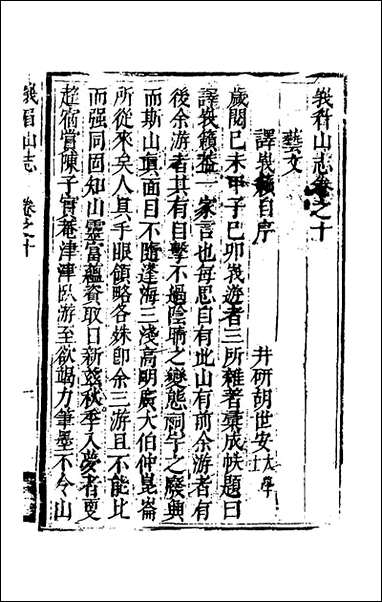 峩眉山志卷之十
藝文
譯峩籟自序
井硏胡世安大學士
歲閱己未甲子己卯峩遊者三所雜著彙成帙題曰
譯峩籟葢一家言也每思自有此山有前余游者有
後余游者其有目擊不過陰晴之變態祠宇之廢興
而斯山眞面目不隨蓬海三淺高明廣大伯仲崑崙
所從來矣人具手眼領略各殊卽余三游且不能比
而强同固知山靈富蘊資取日新茲秋季入夢者更
趂宿嘗陳子實菴津津臥游至欲竭力筆墨不令山
峩眉山志
卷之十
一